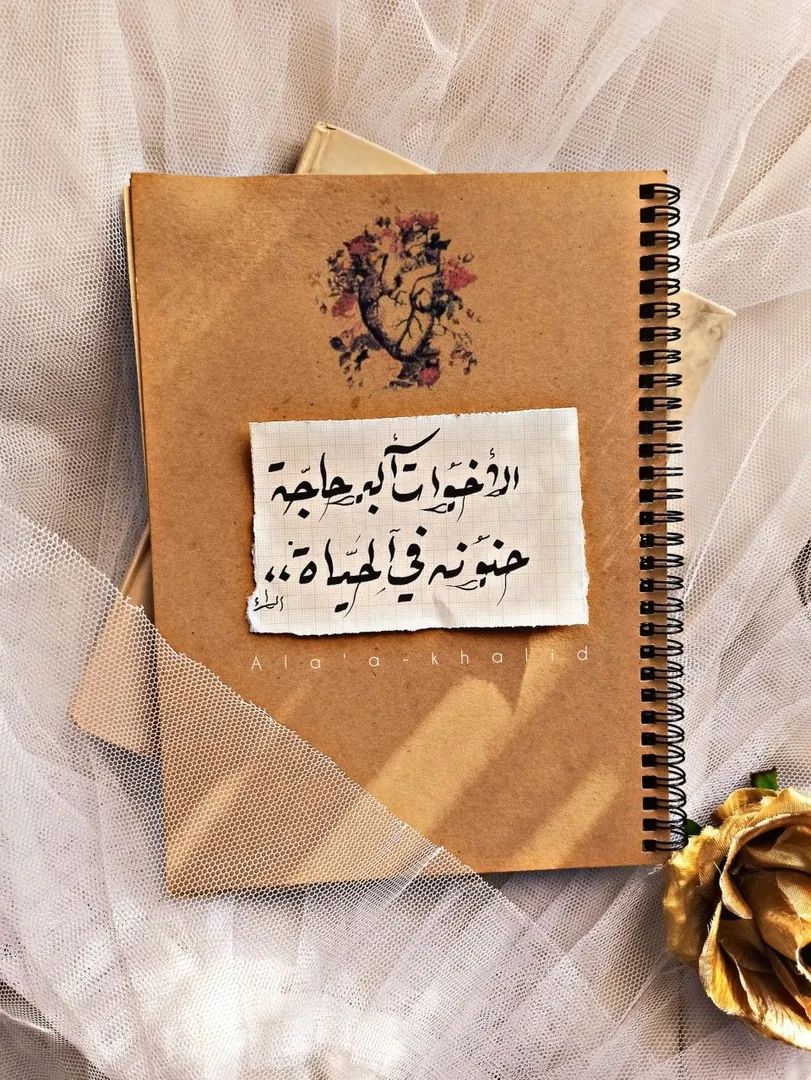 الأخوات أكبر حاجة
حنونه في الحياة،،
الراء
Ala'a-khalid